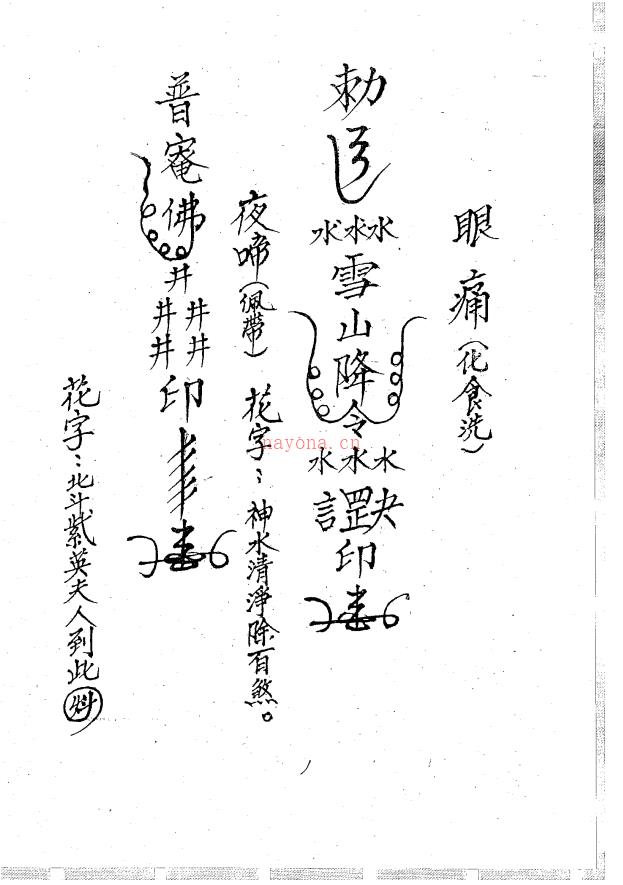 眼痛(化食洗)
勅
水水水
雪山降令
水水水
印
花字：神水清淨除百煞。
夜啼(佩帶)
普庵佛
井
井井
井井
印
花字：北斗紫英夫人到此
nayona.cn